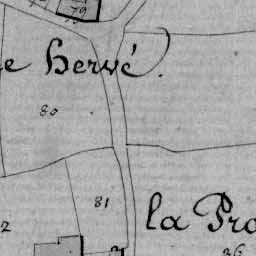 79
e Hervé
80
81
la Pro
2
36